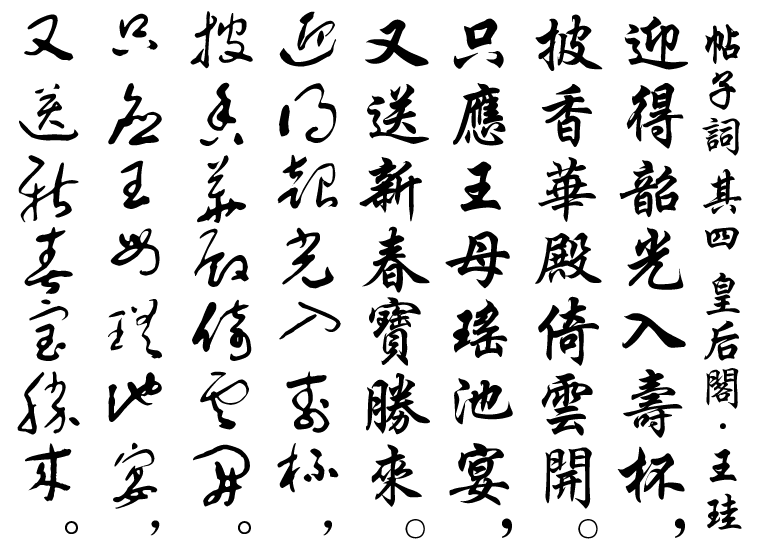 帖子詞 其四 皇后閣·王珪
迎得韶光入壽杯,
披香華殿倚雲開。
只應王母瑤池宴,
又送新春寶勝來。
迎得韶光入壽杯,
披香華殿倚雲開。
只應王母瑤池宴,
又送新春寶勝來。